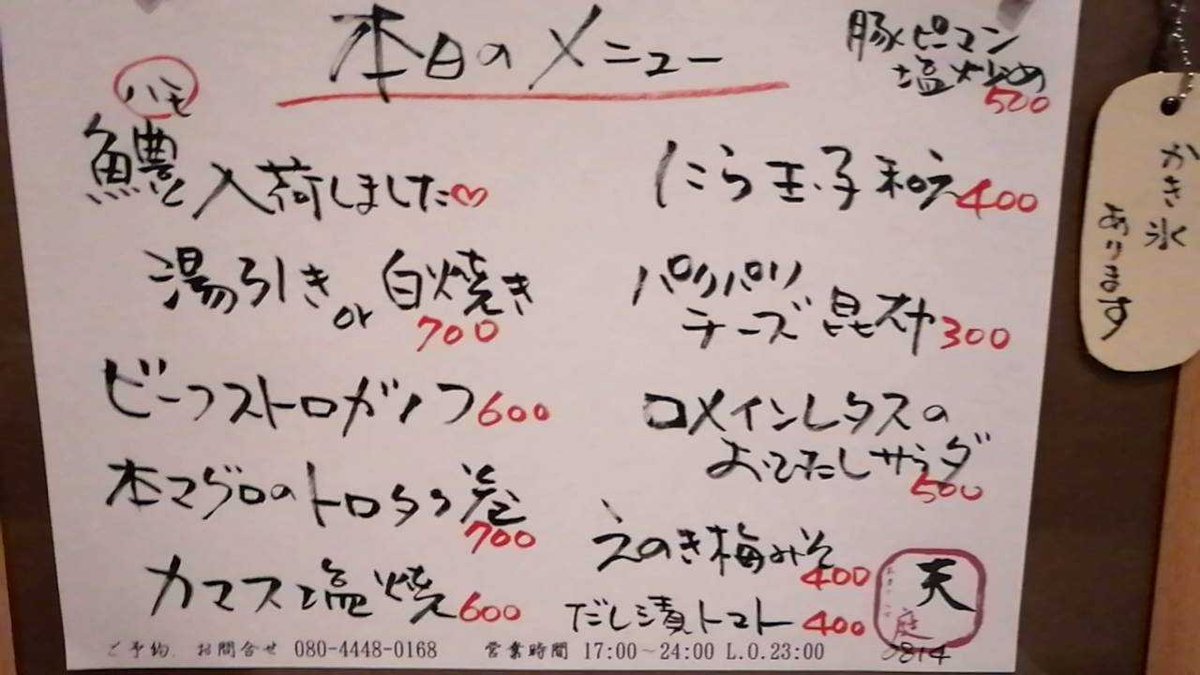 本日のメニュー
ハモ
鱧入荷しました♡
湯引き or 白焼き
700
ビーフストロガノフ 600
本マグロのトロタク巻
700
カマス塩焼 600
豚ピーマン
塩炒め
500
にら玉子和え 400
パリパリ
チーズ昆布 300
ロメインレタスの
おひたしサラダ
500
えのき梅みそ
400
だし漬トマト 400
天
庭
0814
ご予約、お問合せ 080-4448-0168 営業時間 17:00～24:00 L.O.23:00
かき氷
あります